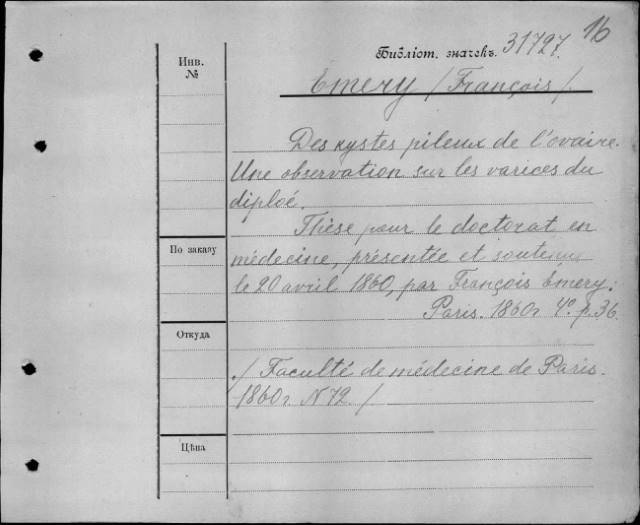 16
Библіот. значекъ. 31727.
Инв.
№
Emery /François/.
Des kystes pileux de l'ovaire.
Une observation sur les varices du
diploé.
Thèse pour le doctorat en
По заказу
médecine, présentée et soutenue
le 20 avril 1860, par François Emery.
Paris. 1860г. 4º. p. 36.
Откуда
/Faculté de médecine de Paris.
1860г. N 72./
Цѣна